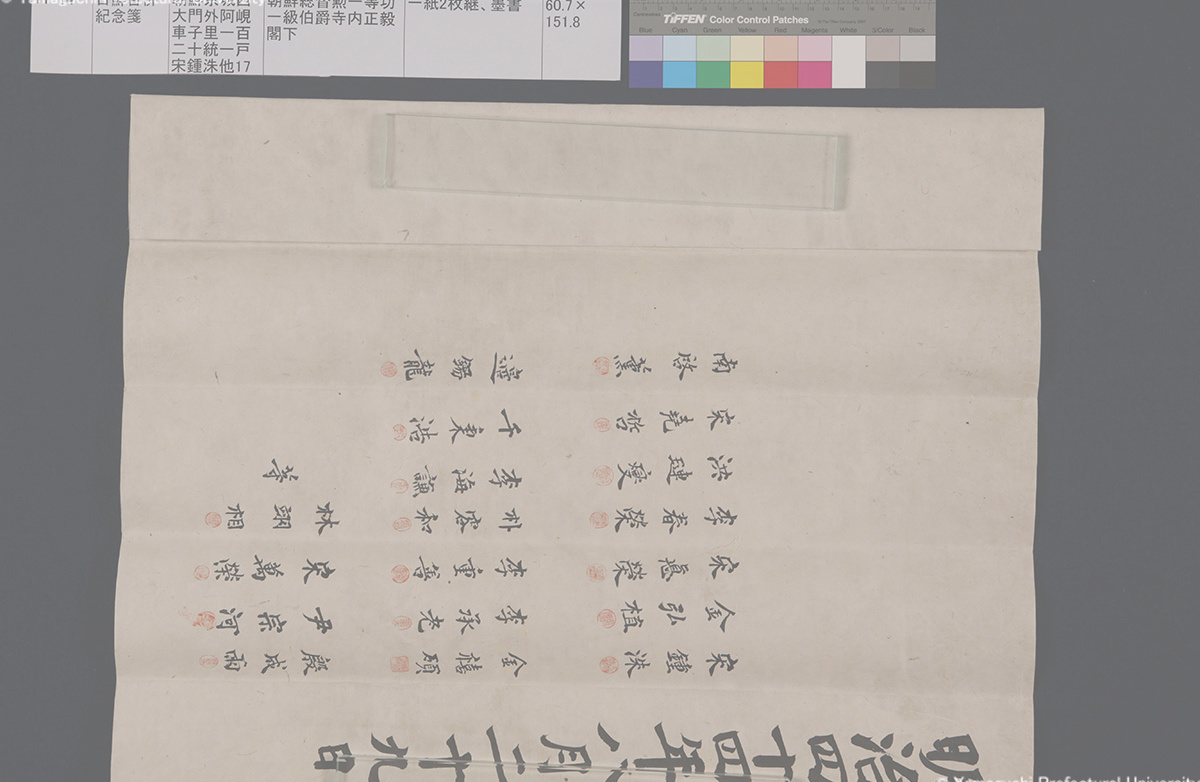 紀念箋
大門外阿峴
車子里一百
二十統一戸
宋鍾洙他17
朝鮮総督勲一等功
一級伯爵寺内正毅
閣下
一紙2枚継、墨書
60.7×
151.8
TIFFEN Color Control Patches
Blue Cyan Green Yellow Red Magenta White 3/Color Black
明治四十四年八月二十九日
宋鍾洙 金禧 殷成雨
金弘植 李承老 尹宗河
宋榮 李重善 宋萬榮
李春榮 朴容和 林翊相
洪燮 李海謙 等
宋堯 千東浩
南啓薰 邊錫龍
© Yamaguchi Prefectural University